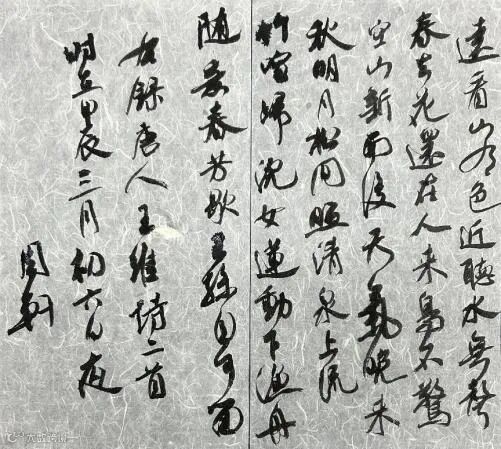 遠看山有色近聽水無聲
春去花還在人来鳥不驚
空山新雨後天氣晚来
秋明月松間照清泉上流
竹喧歸浣女蓮動下漁舟
随意春芳歇王孫自可留
右録唐人王維詩二首
時在甲辰三月初六日夜